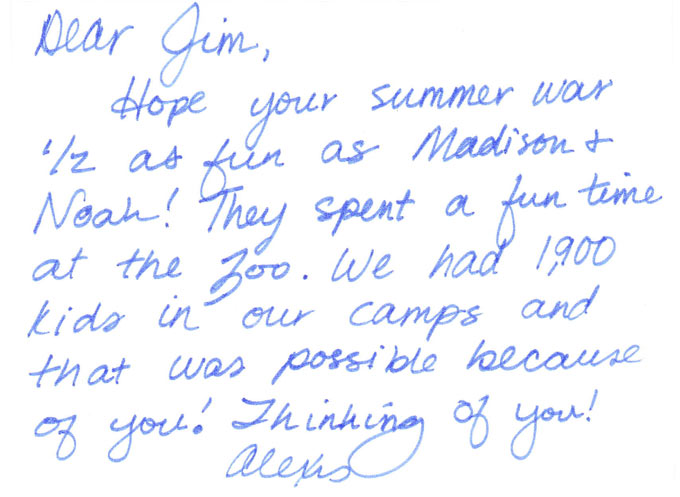 Dear Jim,
Hope your summer was
1/2 as fun as Madison &
Noah! They spent a fun time
at the zoo. We had 1,900
kids in our camps and
that was possible because
of you! Thinking of you!
Alexis